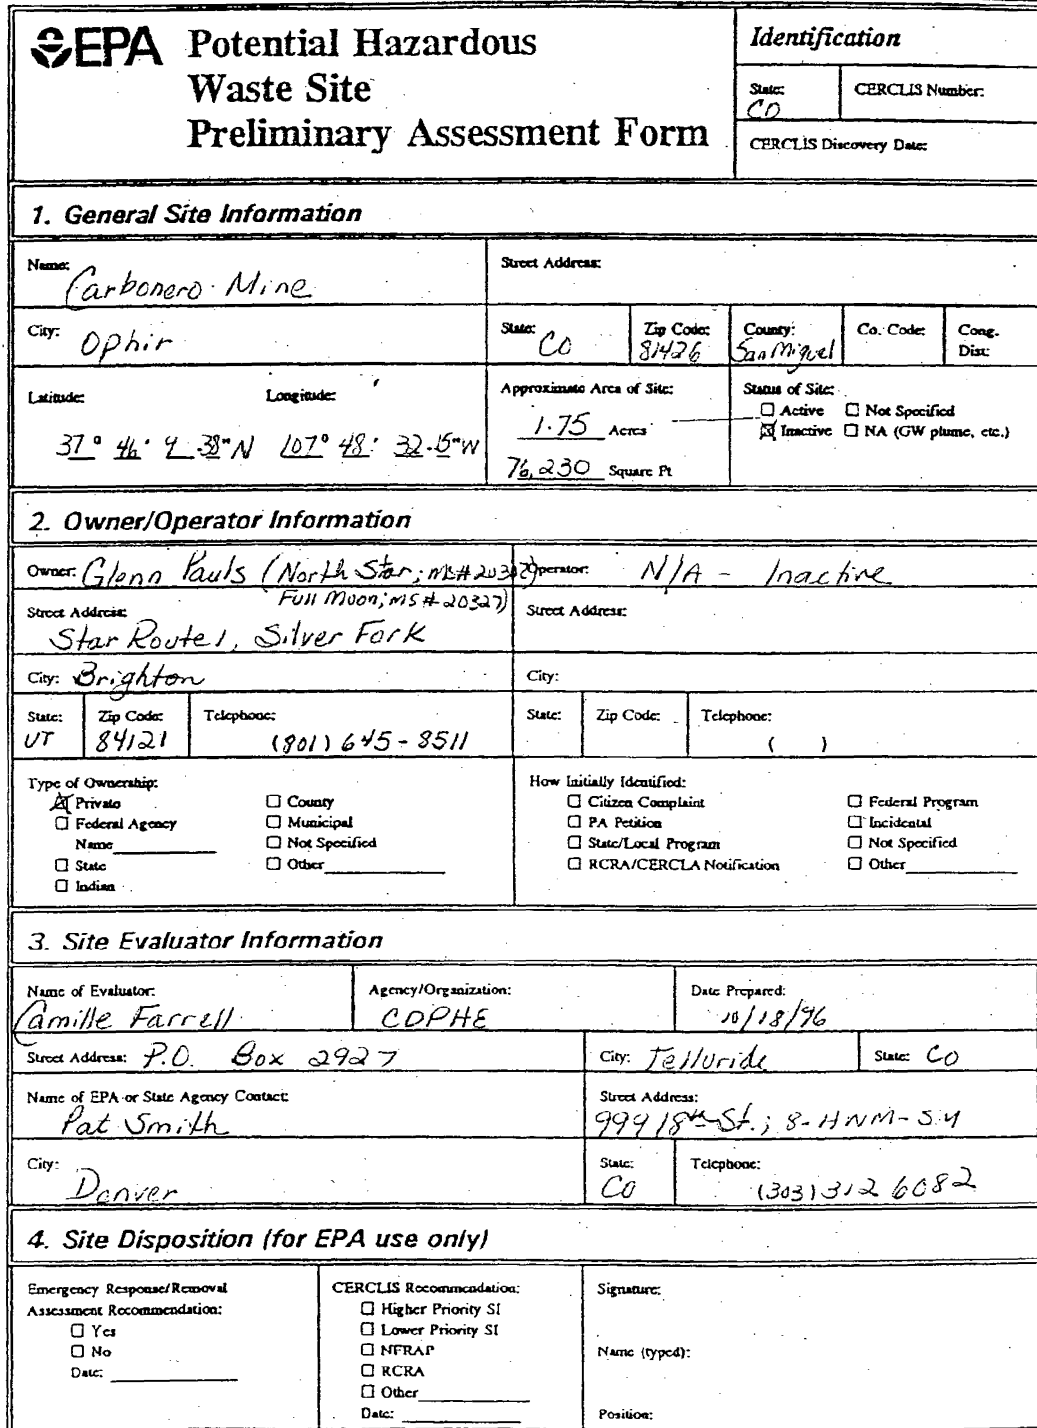 EPA Potential Hazardous
Waste Site
Preliminary Assessment Form
Identification
State: CO
CERCLIS Number:
CERCLIS Discovery Date:
1. General Site Information
Name: Carbonero Mine
Street Address:
City: Ophir
State: CO
Zip Code: 81426
County: San Miguel
Co. Code:
Cong. Dist:
Latitude: Longitude:
37° 46' 9.38" N 107° 48' 32.15" W
Approximate Area of Site:
1.75 Acres
76,230 Square Ft
Status of Site:
☐ Active ☐ Not Specified
☒ Inactive ☐ NA (GW plume, etc.)
2. Owner/Operator Information
Owner: Glenn Pauls (North Star; MS# 20327)
Full Moon; MS# 20327)
Operator: N/A - Inactive
Street Address: Star Route 1, Silver Fork
Street Address:
City: Brighton
City:
State: UT
Zip Code: 84121
Telephone: (801) 645-8511
State:
Zip Code:
Telephone: ( )
Type of Ownership:
☒ Private ☐ County
☐ Federal Agency ☐ Municipal
Name ☐ Not Specified
☐ State ☐ Other
☐ Indian
How Initially Identified:
☐ Citizen Complaint ☐ Federal Program
☐ PA Petition ☐ Incidental
☐ State/Local Program ☐ Not Specified
☐ RCRA/CERCLA Notification ☐ Other
3. Site Evaluator Information
Name of Evaluator: Camille Farrell
Agency/Organization: CDPHE
Date Prepared: 10/18/96
Street Address: P.O. Box 2927
City: Telluride
State: CO
Name of EPA or State Agency Contact: Pat Smith
Street Address: 999 18th St.; 8-HWM-SM
City: Denver
State: CO
Telephone: (303) 312 6082
4. Site Disposition (for EPA use only)
Emergency Response/Removal
Assessment Recommendation:
☐ Yes
☐ No
Date:
CERCLIS Recommendation:
☐ Higher Priority SI
☐ Lower Priority SI
☐ NFRAP
☐ RCRA
☐ Other
Date:
Signature:
Name (typed):
Position: